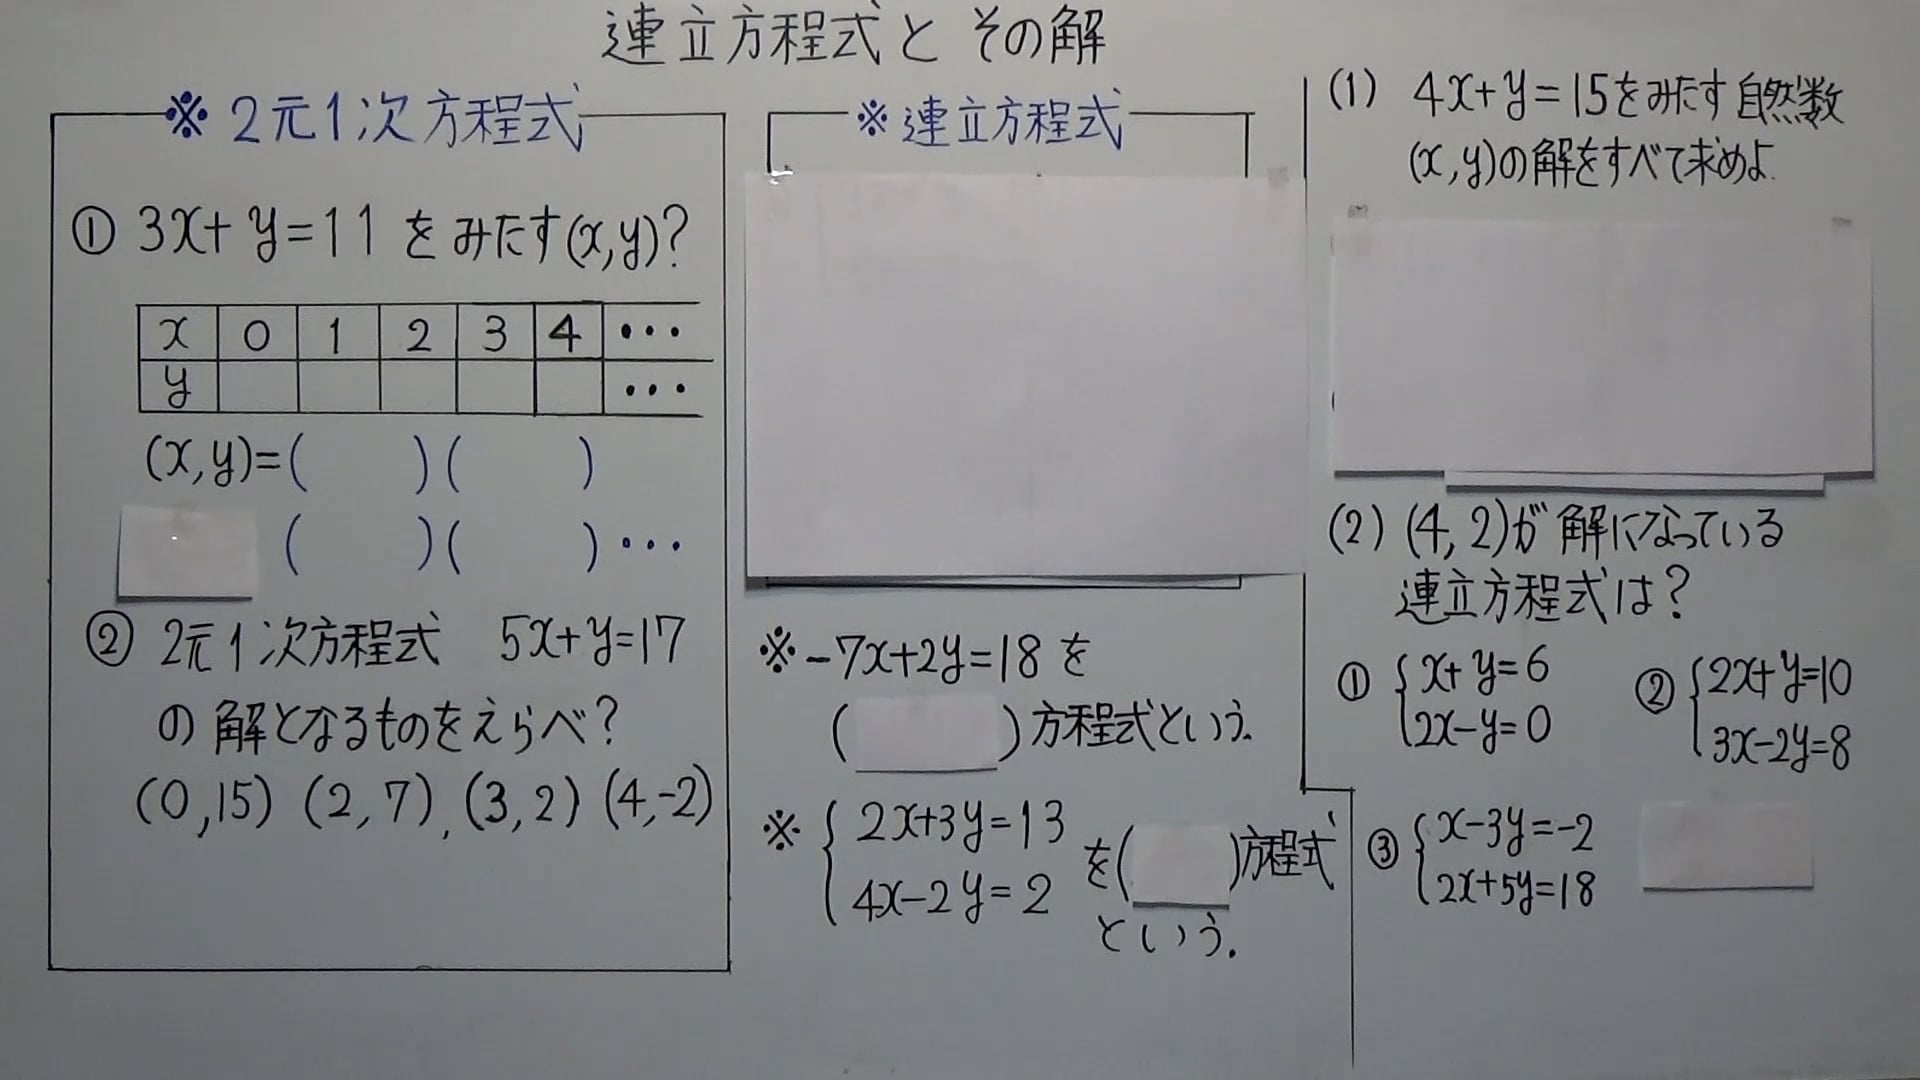 連立方程式とその解
※2元1次方程式
① 3x+y=11をみたす(x,y)?
x 0 1 2 3 4 ・・・
y ・・・
(x,y)=( )( )
( )( )・・・
② 2元1次方程式 5x+y=17
の解となるものをえらべ?
(0,15) (2,7), (3,2) (4,-2)
※連立方程式
※-7x+2y=18を
( )方程式という.
※{2x+3y=13
4x-2y=2
を( )方程式
という.
(1) 4x+y=15をみたす自然数
(x,y)の解をすべて求めよ.
(2) (4,2)が解になっている
連立方程式は?
① {x+y=6
2x-y=0
② {2x+y=10
3x-2y=8
③ {x-3y=-2
2x+5y=18